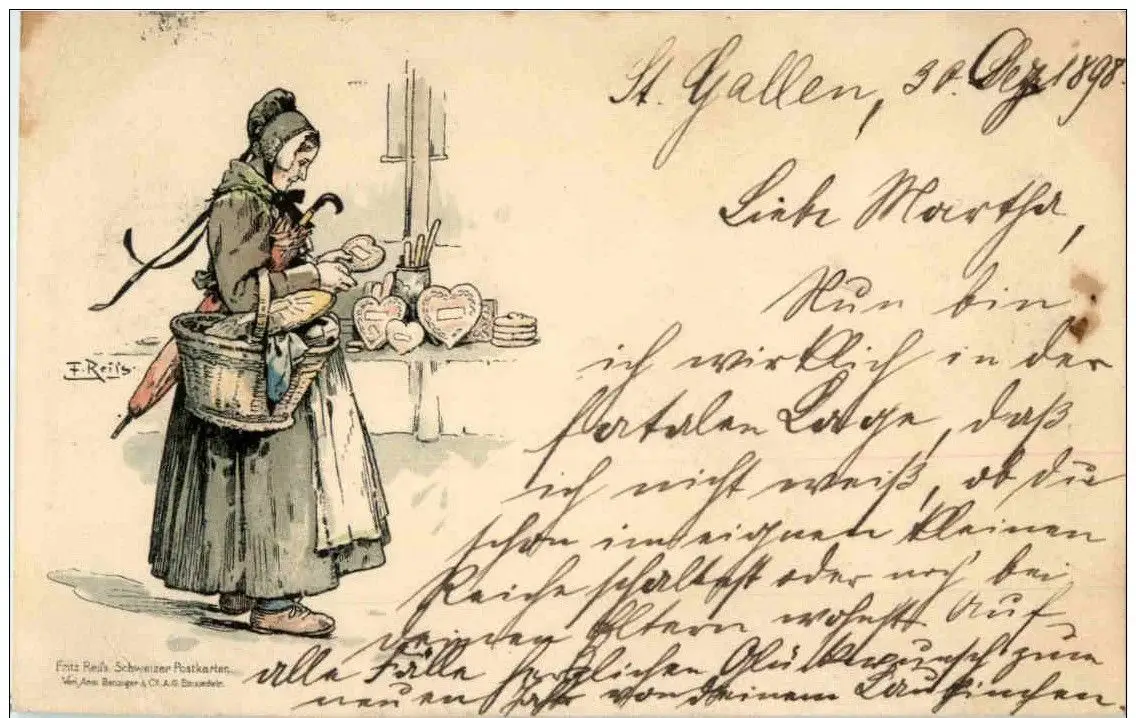 St. Gallen, 30. Dez 1898.
Liebe Martha,
Nun bin
ich wirklich in der
fatalen Lage, daß
ich nicht weiß, ob du
schon im eignen kleinen
Reiche schaltest oder noch bei
deinen Eltern wohnst. Auf
alle Fälle herzlichen Glückwunsch zum
neuen Jahr von deinem
F. Reiss.
Fritz Reiss, Schweizer Postkarten.
Verl. Anst. Benziger & Co. A.G. Einsiedeln.